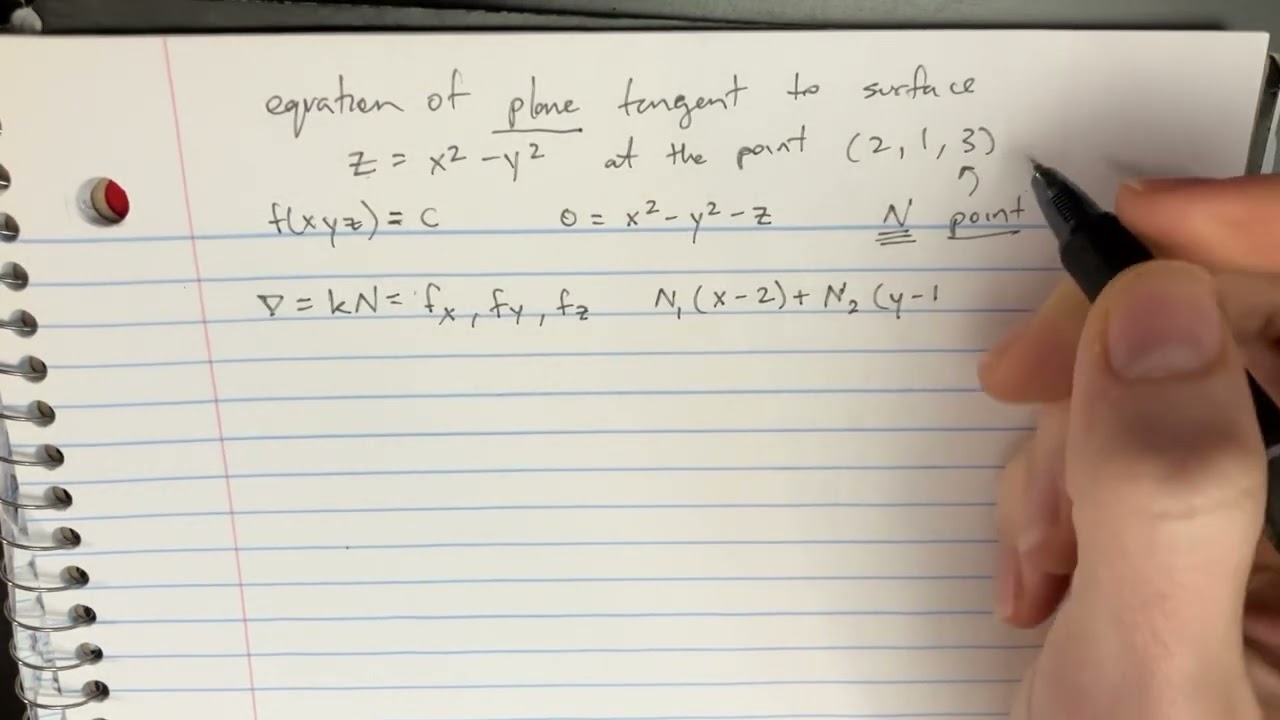 equation of plane tangent to surface
z = x² - y² at the point (2, 1, 3)
f(xyz) = C 0 = x² - y² - z N point
∇ = kN = fx, fy, fz N₁(x-2) + N₂(y-1